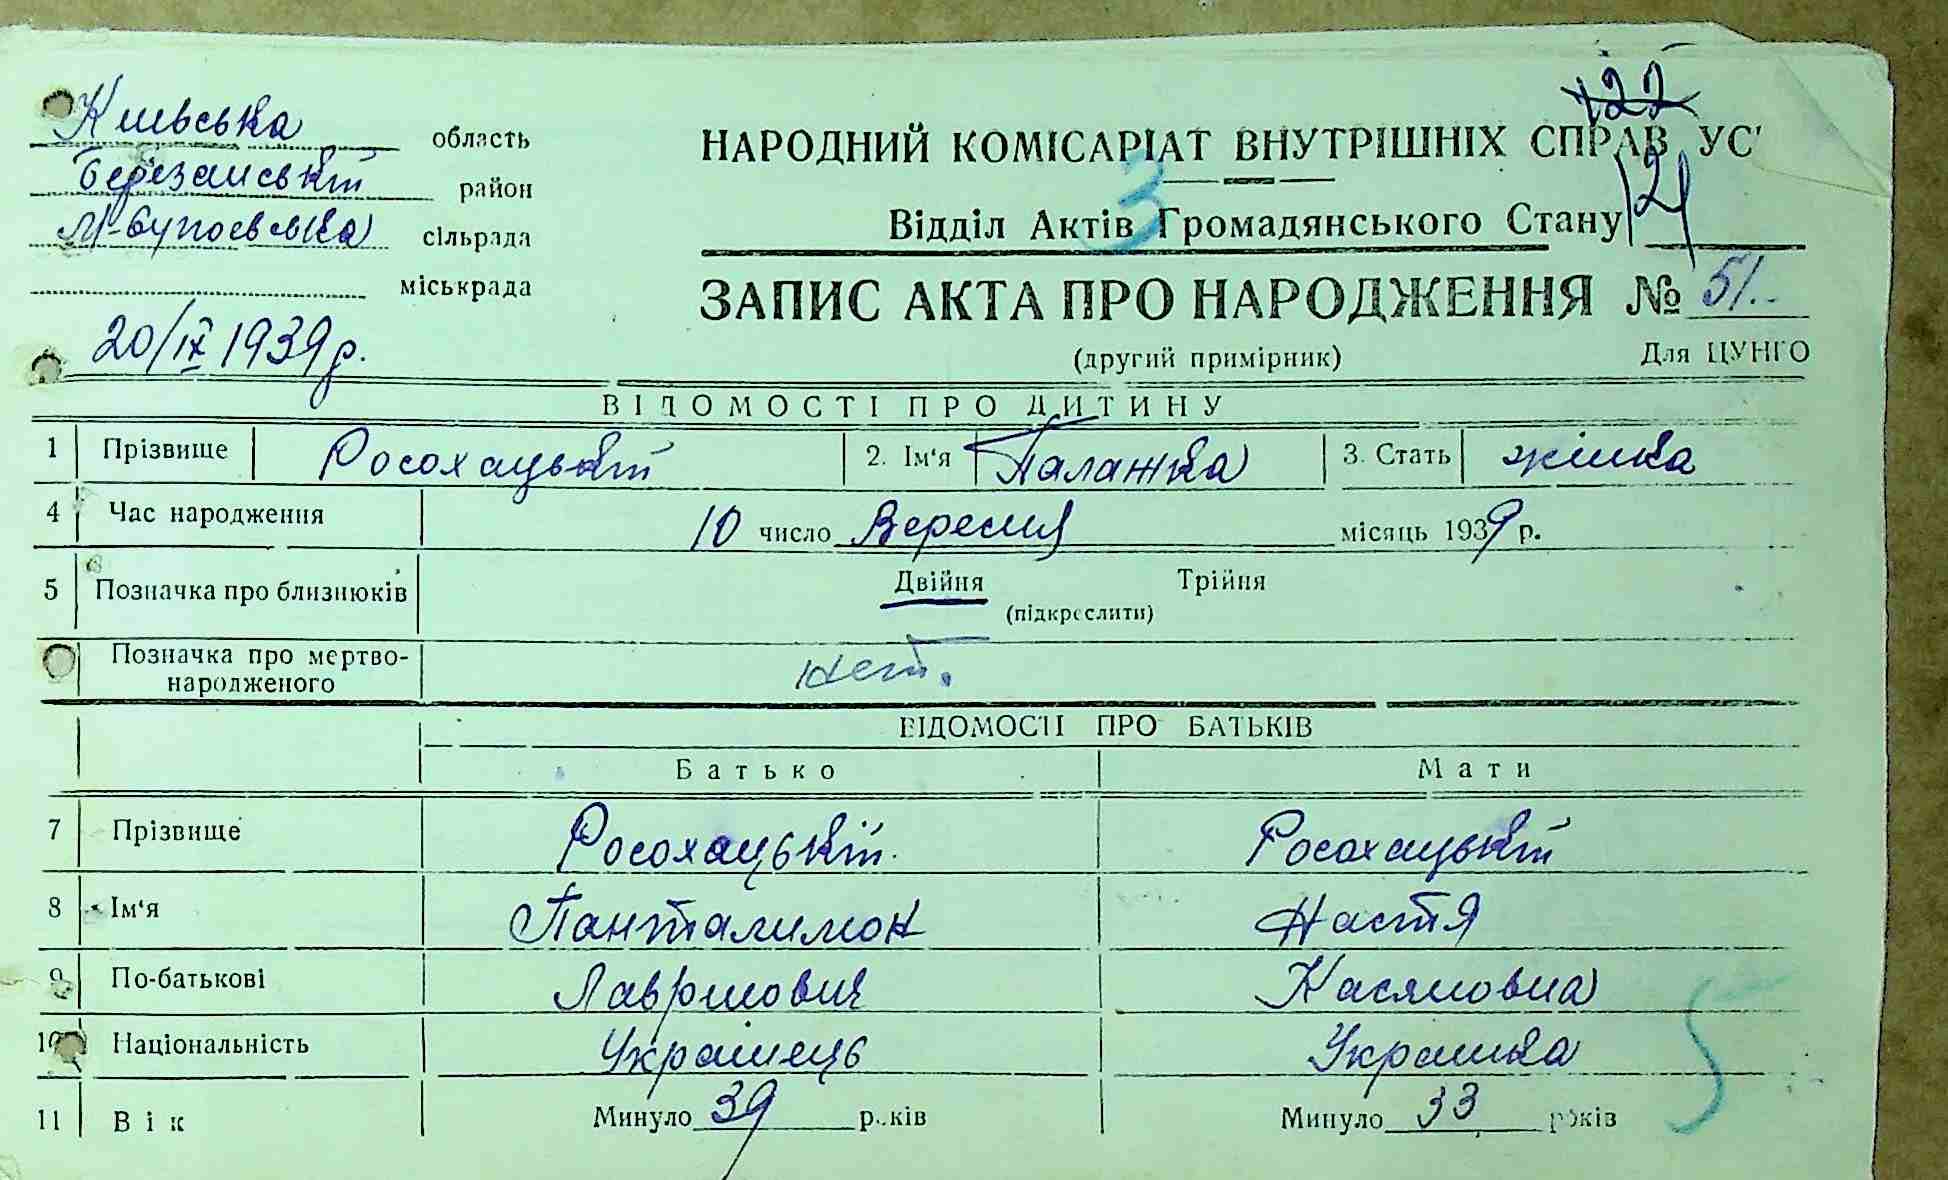 Київська область
Березанський район
М-Супоєвська сільрада
міськрада
20/IX 1939 р.
122
НАРОДНИЙ КОМІСАРІАТ ВНУТРІШНІХ СПРАВ УС
3
Відділ Актів Громадянського Стану
ЗАПИС АКТА ПРО НАРОДЖЕННЯ № 51
(другий примірник) Для ЦУНГО
ВІДОМОСТІ ПРО ДИТИНУ
1 Прізвище Росохацький 2. Ім'я Палажка 3. Стать жінка
4 Час народження 10 число Вересня місяць 1939 р.
5 Позначка про близнюків Двійня Трійня
(підкреслити)
Позначка про мертво-
народженого нет.
ВІДОМОСТІ ПРО БАТЬКІВ
Батько Мати
7 Прізвище Росохацькій Росохацькій
8 Ім'я Панталимон Настя
9 По-батькові Лаврінович Касяновна
10 Національність Українець Українка
11 Вік Минуло 39 років Минуло 33 років
5